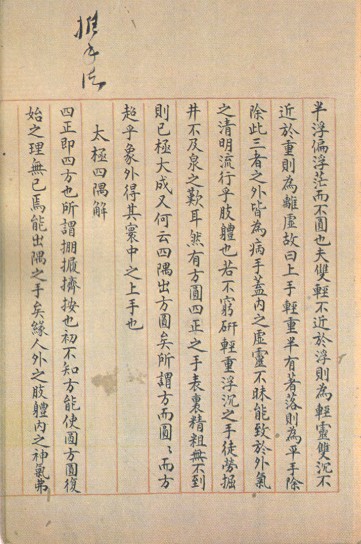 推手法
半浮偏浮茫而不圓也夫雙輕不近於浮則為輕靈雙沉不
近於重則為離虛故曰上手輕重半有著落則為平手除
除此三者之外皆為病手蓋內之虛靈不昧能致於外氣
之清明流行乎肢體也若不窮研輕重浮沉之手徒勞掘
井不及泉之歎耳然有方圓四正之手表裏精粗無不到
則已極大成又何云四隅出方圓矣所謂方而圓〻而方
超乎象外得其寰中之上手也
太極四隅解
四正即四方也所謂掤擺擠按也初不知方能使圓方圓復
始之理無已焉能出隅之手矣緣人外之肢體內之神氣弗